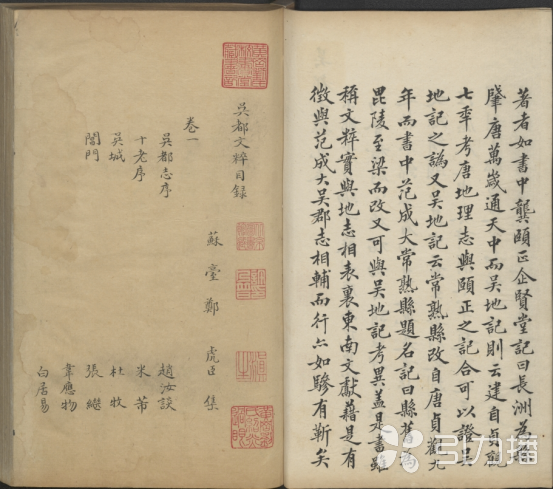 著者如書中龔頤正企賢堂記曰長洲為縣
肇唐萬歲通天中而吳地記則云建自貞觀
七年考唐地理志與頤正之記合可以證吳
地記之譌又吳地記云常熟縣改自唐貞觀九
年而書中范成大常熟縣題名記曰縣舊為
毘陵至梁而改又可與吳地記考異蓋是書雖
稱文粹實與地志相表裏東南文獻藉是有
徵與范成大吳郡志相輔而行亦如驂有靳矣
吳都文粹目録
蘇臺鄭 虎臣 集
卷一
吳都志序 趙汝談
十老序 米芾
吳城 杜牧
張繼
閶門 韋應物
白居易
引力播